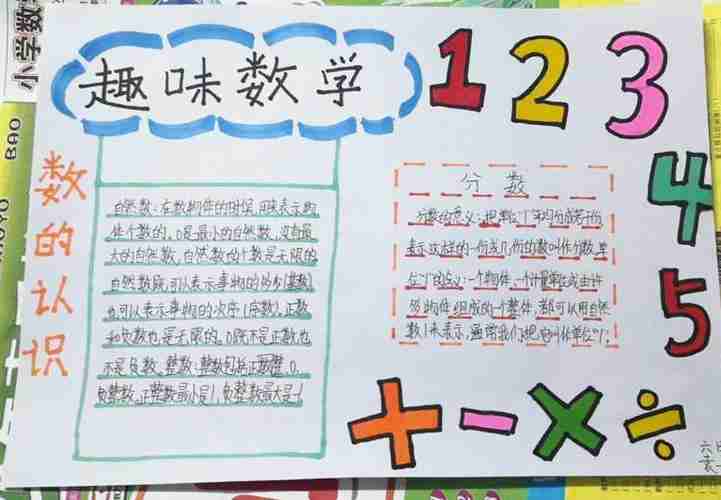 小学数
BAO
趣味数学
1 2 3
4
5
数的认识
自然数:在数物体的时候,用来表示物
体个数的,0是最小的自然数,没有最
大的自然数,自然数的个数是无限的
自然数既可以表示事物的多少(基数)
也可以表示事物的次序(序数),正数
和负数也是无限的。0既不是正数,也
不是负数。整数:整数包括正整数,0,
负整数,正整数最小是1,负整数最大是-1
分数
分数的意义:把单位"1"平均分成若干份
表示这样的一份或几份的数叫作分数,单
位"1"的含义:一个物体、一个计量单位或由许
多物体组成的一个整体,都可以用自然
数1来表示,通常我们把它叫作单位"1"。
+ − × ÷
六
袁